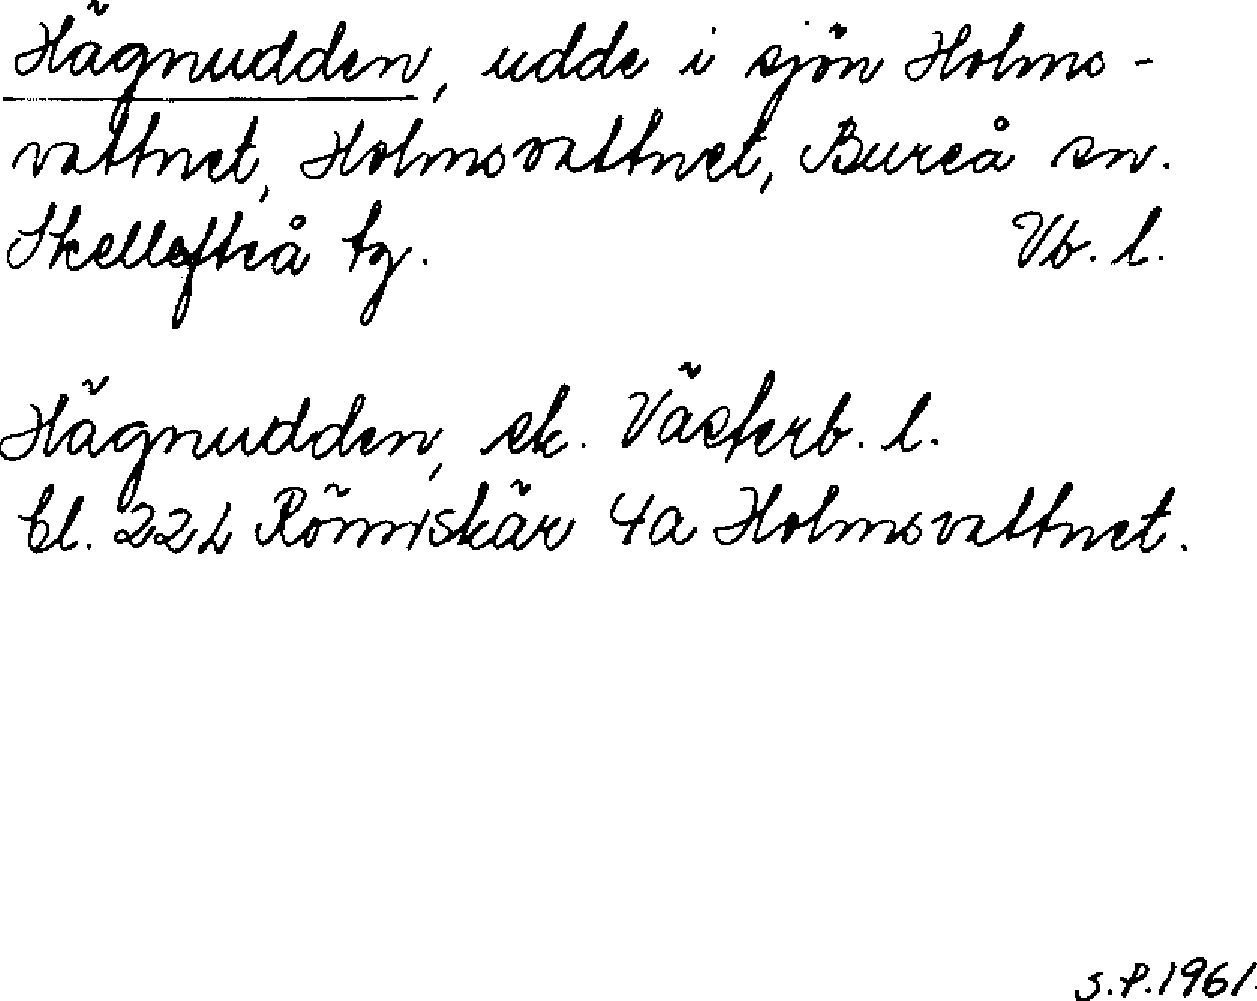 Hägnudden, udde i sjön Holms-
vattnet, Holmsvattnet, Bureå sn.
Skellefteå tg. Vb. l.
Hägnudden, ek. Västerb. l.
bl. 22L Rönnskär 4a Holmsvattnet.
S.P. 1961.